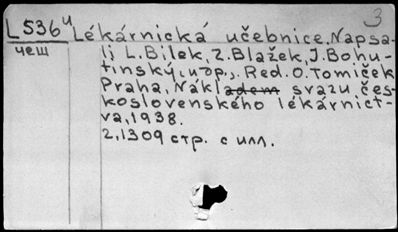 3
L 536 u Lékárnická učebnice. Napsa-
чеш li L. Bílek, Z. Blažek, J. Bohu-
tinský, и др., Red. O. Tomíček
Praha, Nákladem svazu čes-
koslovenského lékárnict-
va, 1938.
2, 1309 стр. с илл.